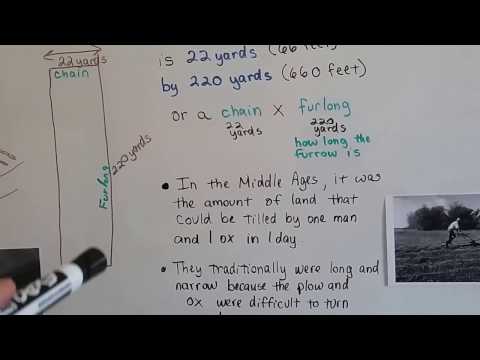 22 yards
chain
Furlong
220 yards
is 22 yards (66 feet)
by 220 yards (660 feet)
or a chain x furlong
22 yards
220 yards
how long the
furrow is
• In the Middle Ages, it was
the amount of land that
could be tilled by one man
and 1 ox in 1 day.
• They traditionally were long and
narrow because the plow and
ox were difficult to turn